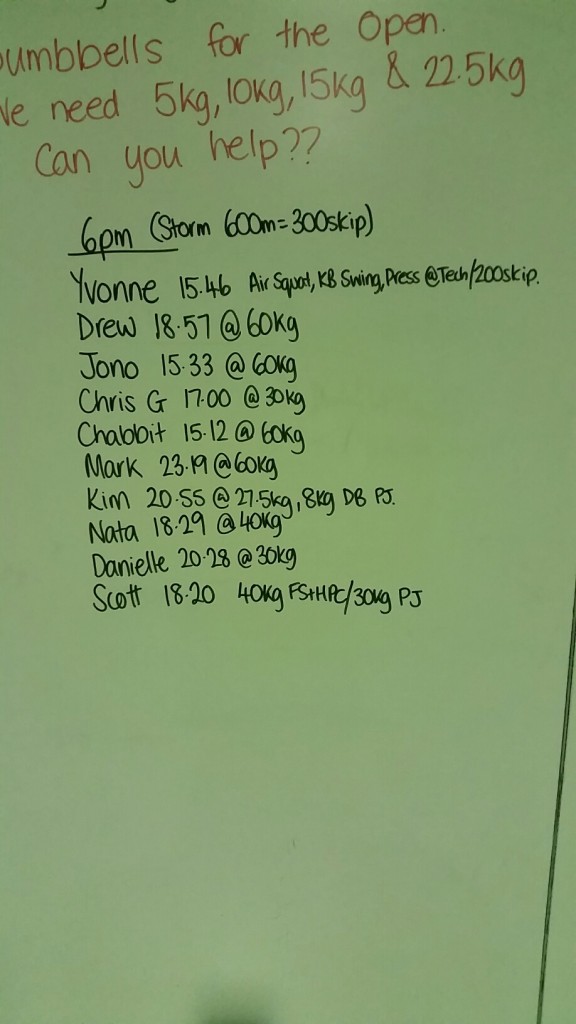 umbbells for the Open.
We need 5kg, 10kg, 15kg & 22.5kg
Can you help??
6pm (Storm 600m=300skip)
Yvonne 15.46 Air Squat, KB Swing, Press @Tech/200skip.
Drew 18.57 @ 60kg
Jono 15.33 @ 60kg
Chris G 17.00 @ 30kg
Chabbit 15.12 @ 60kg
Mark 23.19 @ 60kg
Kim 20.55 @ 27.5kg, 8kg DB PJ.
Nata 18.29 @ 40kg
Danielle 20.28 @ 30kg
Scott 18.20 40kg FS+HPC/30kg PJ